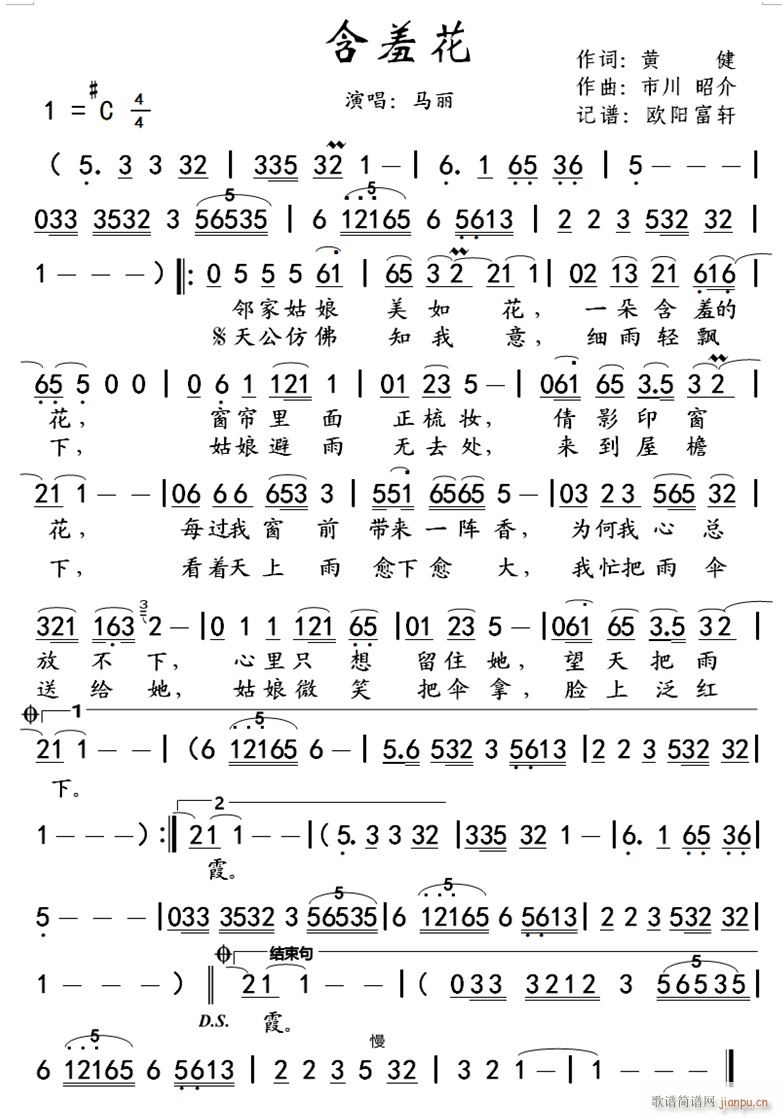 含羞花
作词：黄 健
作曲：市川 昭介
演唱：马丽
记谱：欧阳富轩
1 = #C 4/4
( 5. 3 3 32 | 335 32 1 — | 6. 1 65 36 | 5 — — —
5 5
033 3532 3 56535 | 6 12165 6 5613 | 2 2 3 532 32 |
1 — — — ) ‖: 0 5 5 5 61 | 65 3 2 21 1 | 02 13 21 616 |
邻家姑娘 美如 花， 一朵含羞的
天公仿佛 知我 意， 细雨轻飘
65 5 0 0 | 0 6 1 121 1 | 01 23 5 — | 061 65 3.5 3 2 |
花， 窗帘里面 正梳妆， 倩影印窗
下， 姑娘避雨 无去处， 来到屋檐
21 1 — — | 06 66 653 3 | 551 6565 5 — | 03 23 565 32 |
花， 每过我窗前 带来一阵香， 为何我心总
下， 看着天上雨 愈下愈大， 我忙把雨伞
3
321 163 2 — | 0 1 1 121 65 | 01 23 5 — | 061 65 3.5 3 2 |
放不下， 心里只想 留住她， 望天把雨
送给她， 姑娘微笑 把伞拿， 脸上泛红
1 5
21 1 — — | (6 12165 6 — | 5.6 532 3 5613 | 2 2 3 532 32 |
下。
2
1 — — — ) :‖ 21 1 — — | (5. 3 3 32 | 335 32 1 — | 6. 1 65 36 |
霞。
5 5
5 — — — | 033 3532 3 56535 | 6 12165 6 5613 | 2 2 3 532 32 |
结束句 5
1 — — — ) ‖ 21 1 — — | ( 033 3212 3 56535 |
D.S. 霞。
5 慢
6 12165 6 5613 | 2 2 3 5 32 | 1 — — — | 1 — — — ‖
歌谱简谱网
jianpu.cn